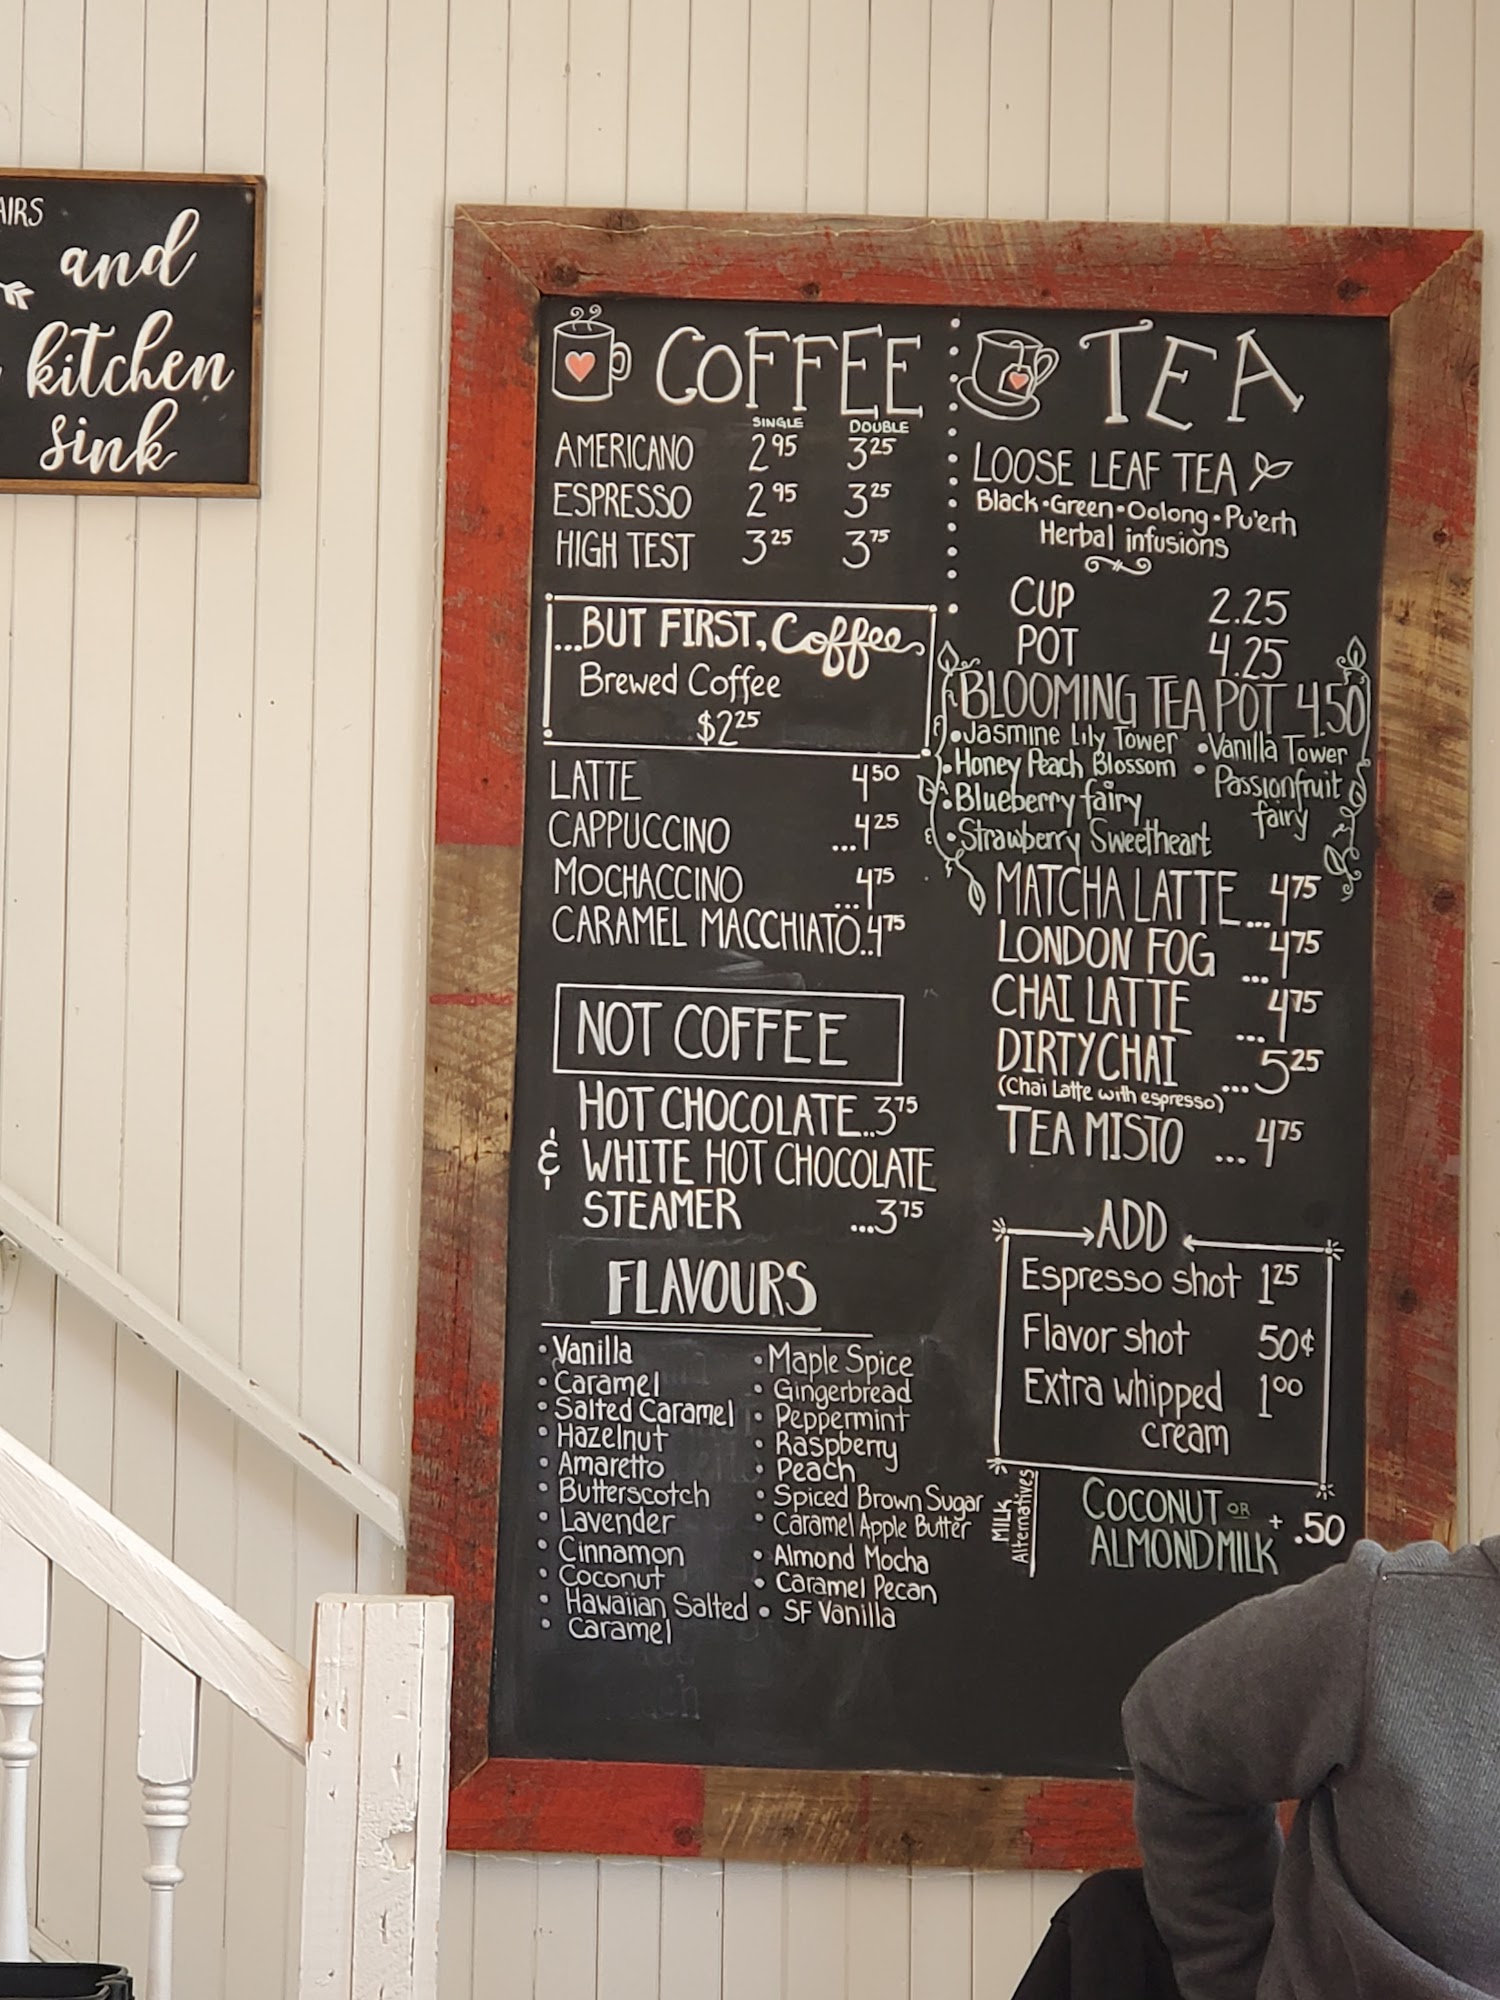 AIRS
and
kitchen
sink
COFFEE
SINGLE DOUBLE
AMERICANO 2.95 3.25
ESPRESSO 2.95 3.25
HIGH TEST 3.25 3.75
...BUT FIRST, Coffee
Brewed Coffee
$2.25
LATTE 4.50
CAPPUCCINO ...4.25
MOCHACCINO ...4.75
CARAMEL MACCHIATO..4.75
NOT COFFEE
HOT CHOCOLATE..3.75
& WHITE HOT CHOCOLATE
STEAMER ...3.75
FLAVOURS
• Vanilla
• Caramel
• Salted Caramel
• Hazelnut
• Amaretto
• Butterscotch
• Lavender
• Cinnamon
• Coconut
• Hawaiian Salted
• Caramel
• Maple Spice
• Gingerbread
• Peppermint
• Raspberry
• Peach
• Spiced Brown Sugar
• Caramel Apple Butter
• Almond Mocha
• Caramel Pecan
• SF Vanilla
TEA
LOOSE LEAF TEA
Black • Green • Oolong • Pu'erh
Herbal infusions
CUP 2.25
POT 4.25
BLOOMING TEA POT 4.50
• Jasmine Lily Tower • Vanilla Tower
• Honey Peach Blossom • Passionfruit
• Blueberry fairy fairy
• Strawberry Sweetheart
MATCHA LATTE...4.75
LONDON FOG ...4.75
CHAI LATTE ...4.75
DIRTY CHAI ...5.25
(Chai Latte with espresso)
TEA MISTO ...4.75
ADD
Espresso shot 1.25
Flavor shot 50¢
Extra whipped 1.00
cream
MILK
Alternatives
COCONUT OR
ALMOND MILK + .50